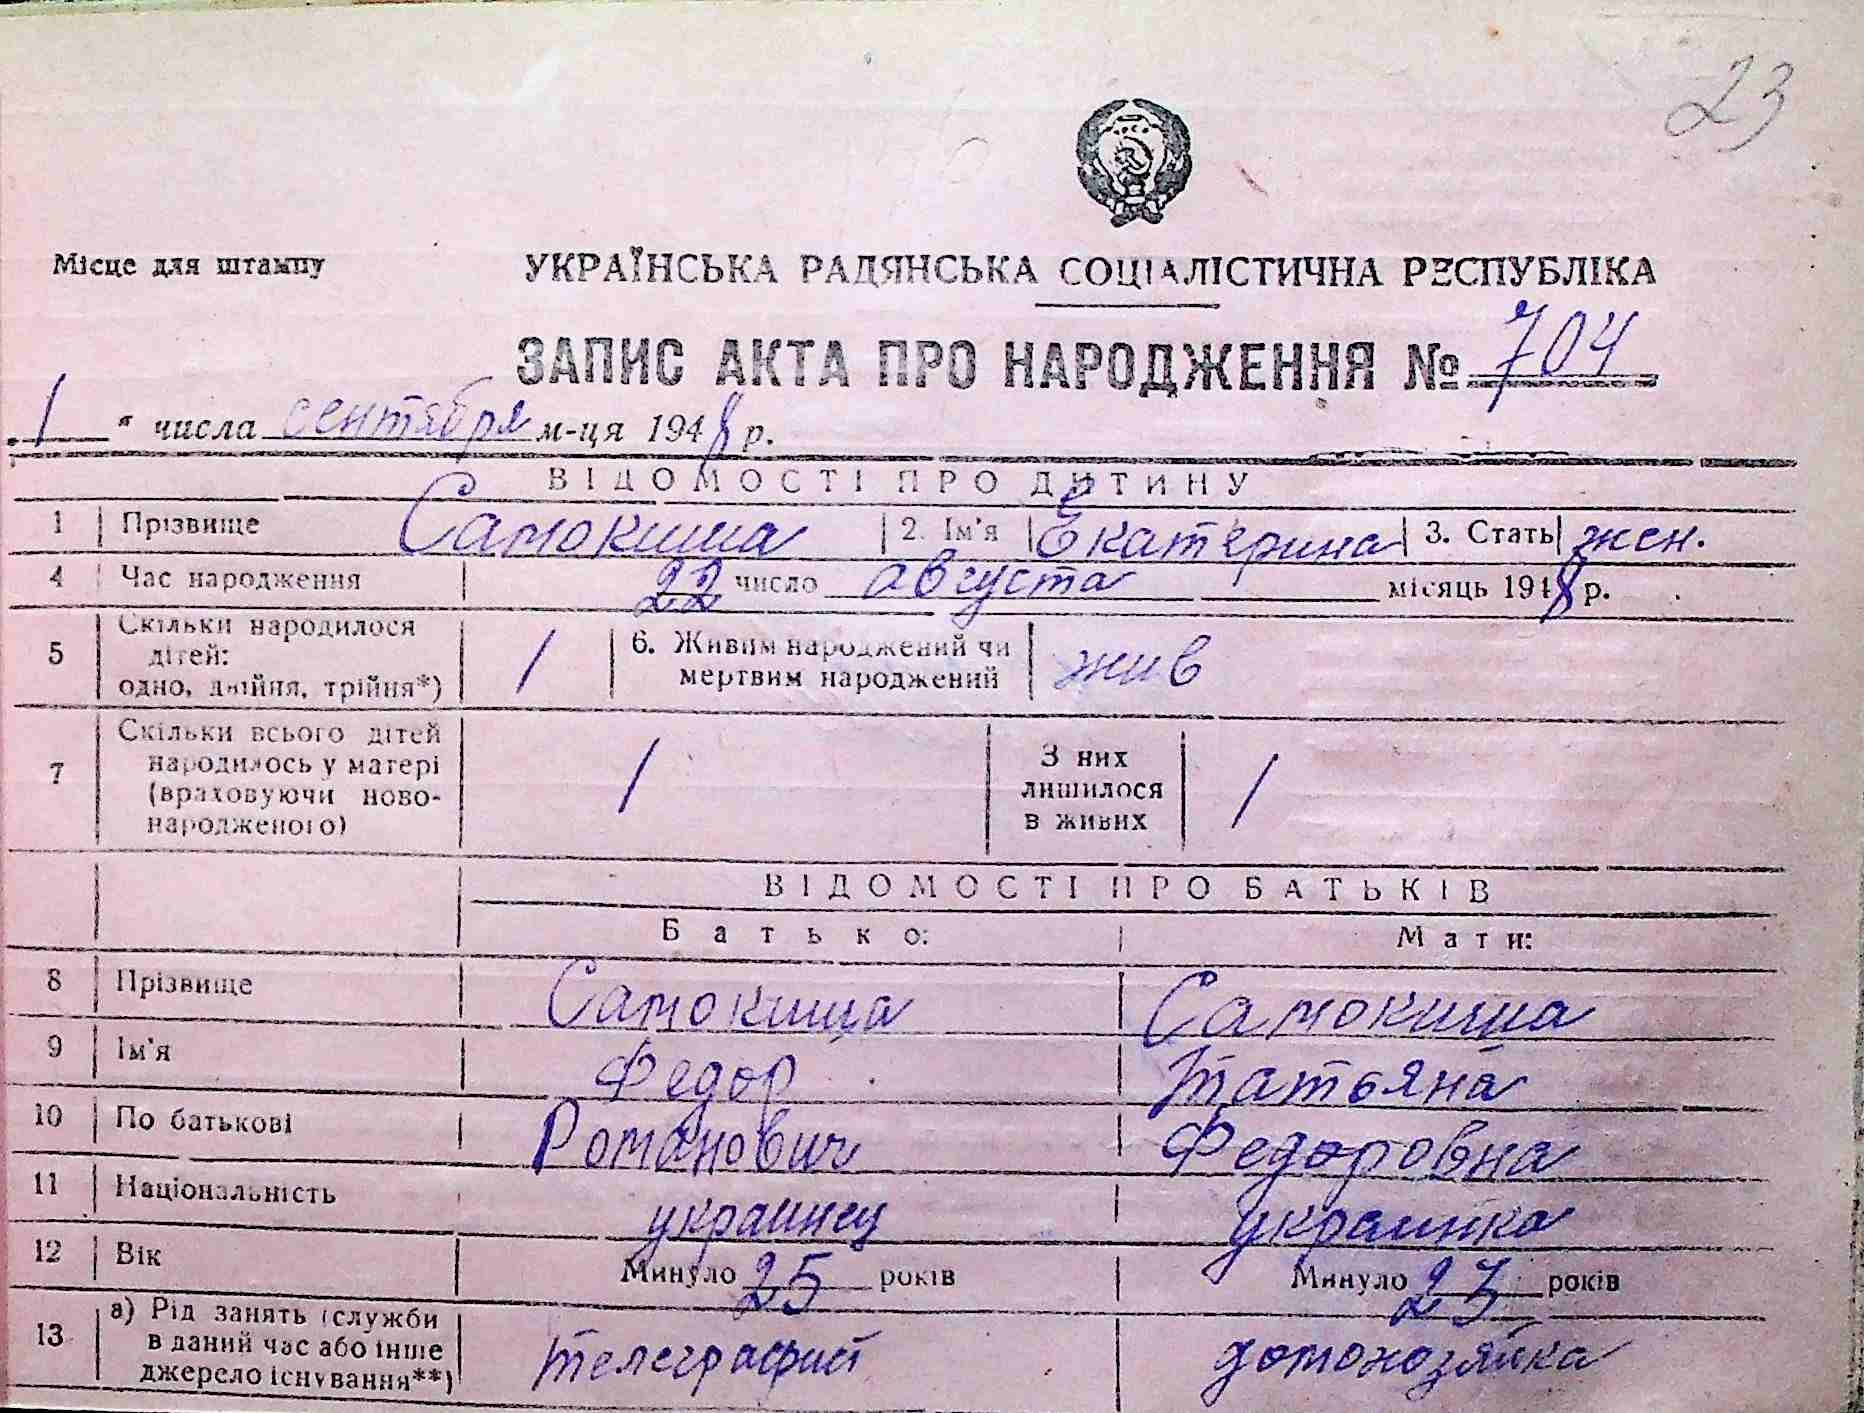 23
Місце для штампу
УКРАЇНСЬКА РАДЯНСЬКА СОЦІАЛІСТИЧНА РЕСПУБЛІКА
ЗАПИС АКТА ПРО НАРОДЖЕННЯ № 704
„ 1 " числа сентября м-ця 1948 р.
ВІДОМОСТІ ПРО ДИТИНУ
1 Прізвище Самокиша 2. Ім'я Екатерина 3. Стать жен.
4 Час народження 22 число августа місяць 1948 р.
5 Скільки народилося
дітей:
одно, двійня, трійня*) 1 6. Живим народжений чи
мертвим народжений жив
7 Скільки всього дітей
народилось у матері
(враховуючи ново-
народженого) 1 З них
лишилося
в живих 1
ВІДОМОСТІ ПРО БАТЬКІВ
Батько: Мати:
8 Прізвище Самокиша Самокиша
9 Ім'я Федор Татьяна
10 По батькові Романович Федоровна
11 Національність украинец украинка
12 Вік Минуло 25 років Минуло 23 років
13 а) Рід занять (служби
в даний час або інше
джерело існування**) телеграфист домохозяйка